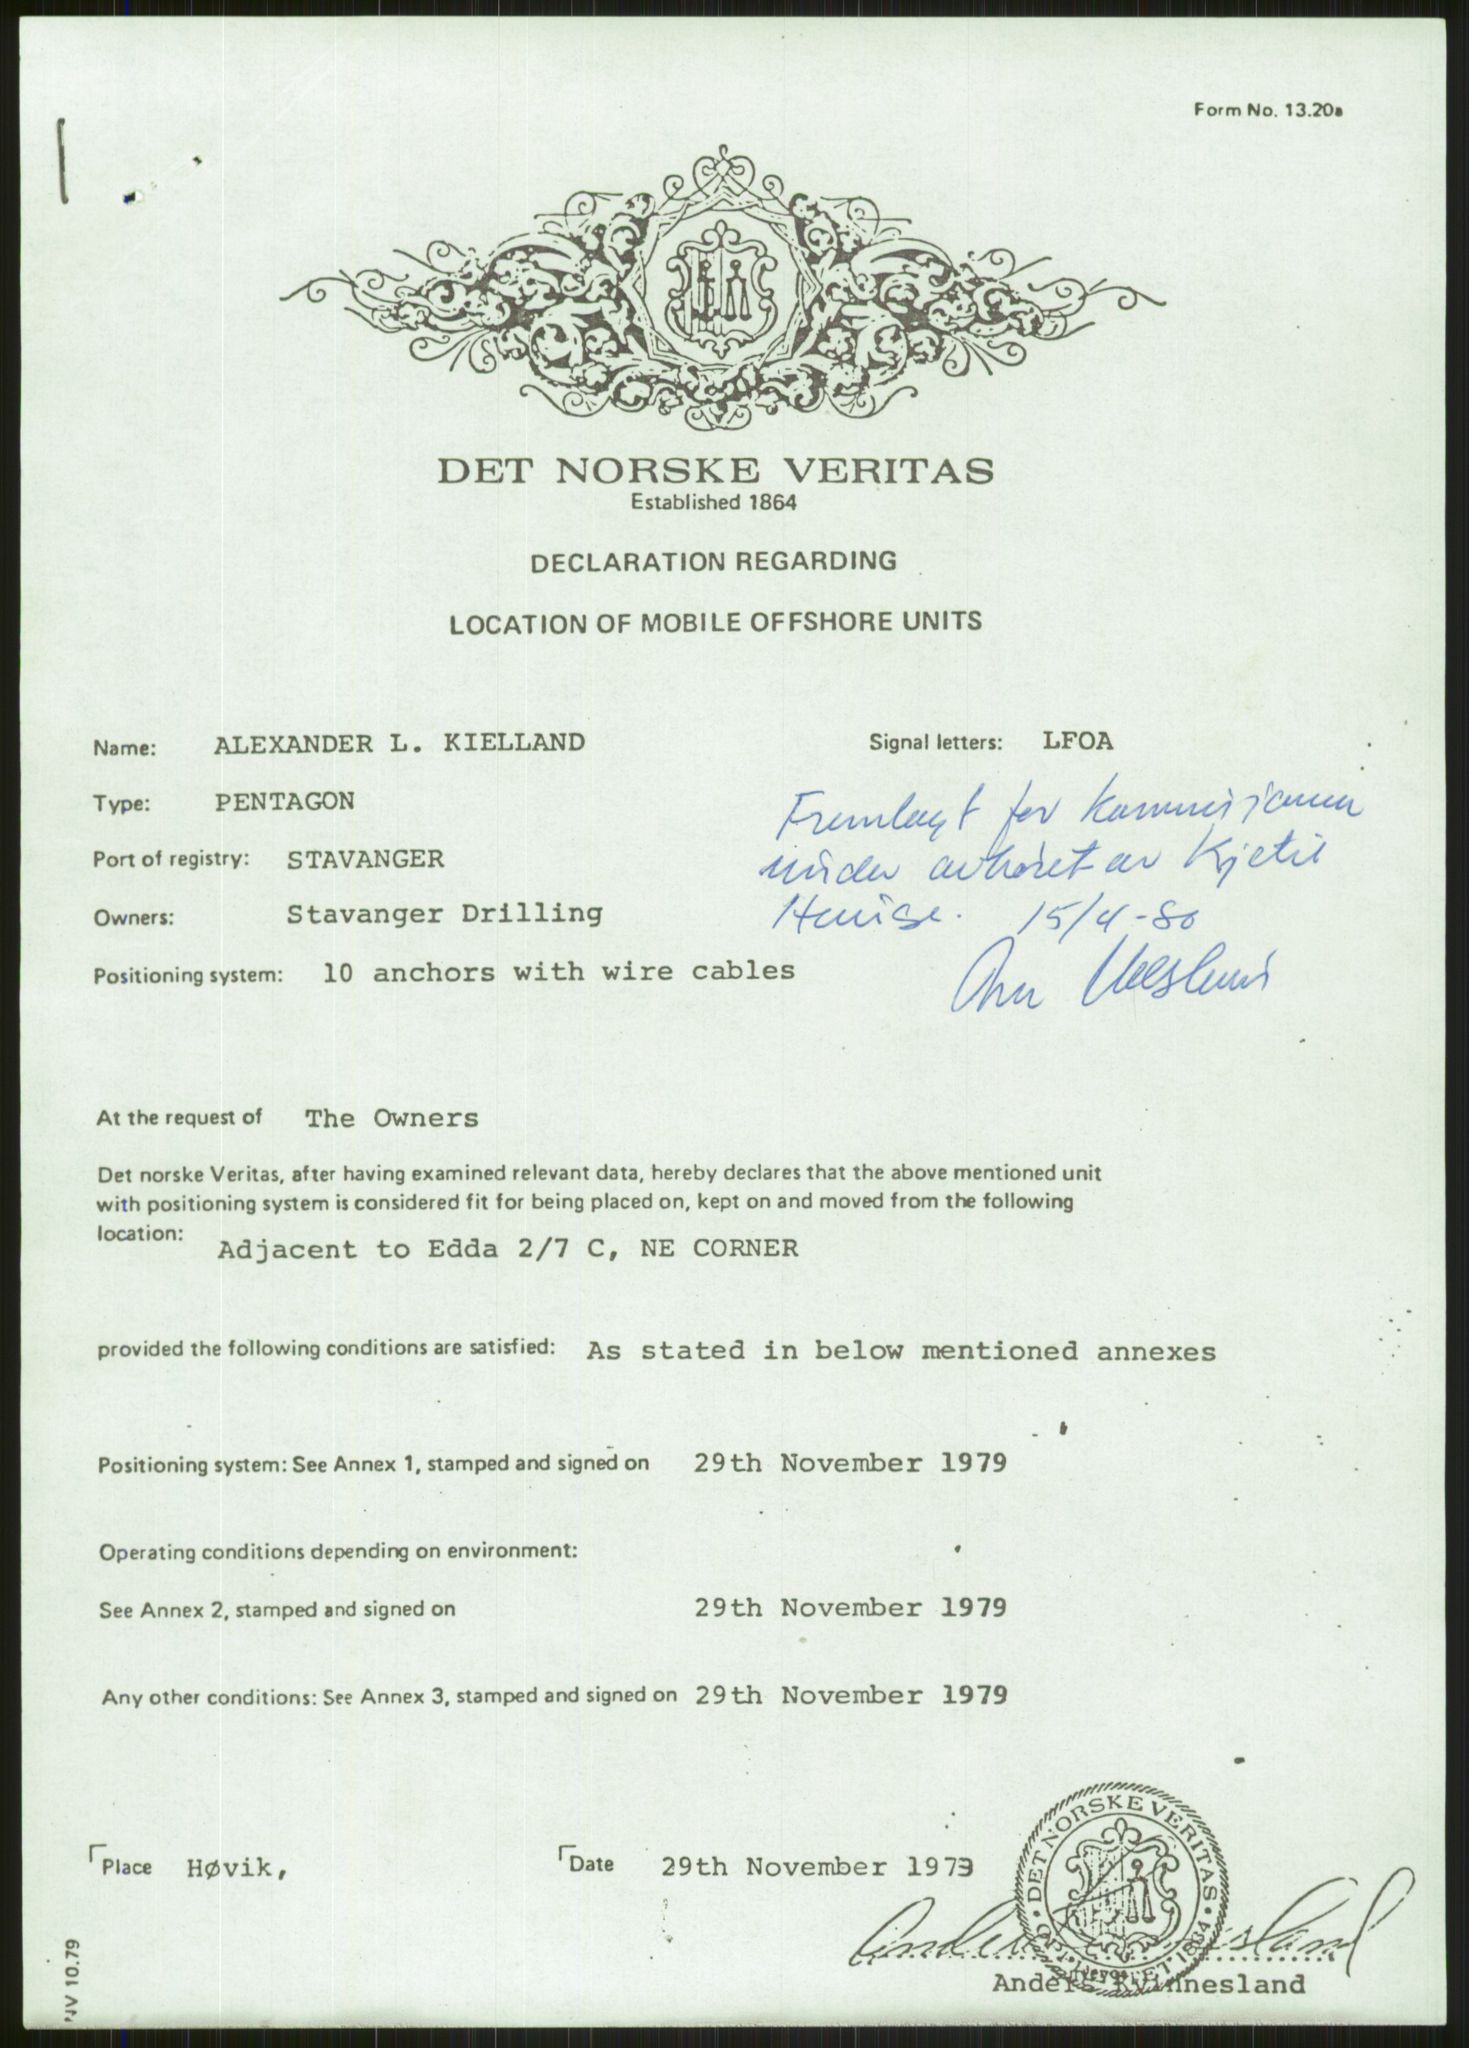 Form No. 13.20a
DET NORSKE VERITAS
Established 1864
DECLARATION REGARDING
LOCATION OF MOBILE OFFSHORE UNITS
Name: ALEXANDER L. KIELLAND Signal letters: LFOA
Type: PENTAGON
Port of registry: STAVANGER
Owners: Stavanger Drilling
Positioning system: 10 anchors with wire cables
Fremlagt for kommisjonen
under avhøret av Kjetil
15/4-80
At the request of The Owners
Det norske Veritas, after having examined relevant data, hereby declares that the above mentioned unit
with positioning system is considered fit for being placed on, kept on and moved from the following
location: Adjacent to Edda 2/7 C, NE CORNER
provided the following conditions are satisfied: As stated in below mentioned annexes
Positioning system: See Annex 1, stamped and signed on 29th November 1979
Operating conditions depending on environment:
See Annex 2, stamped and signed on 29th November 1979
Any other conditions: See Annex 3, stamped and signed on 29th November 1979
Place Høvik, Date 29th November 1979
DET NORSKE VERITAS
Anders Kvinnesland
NV 10.79